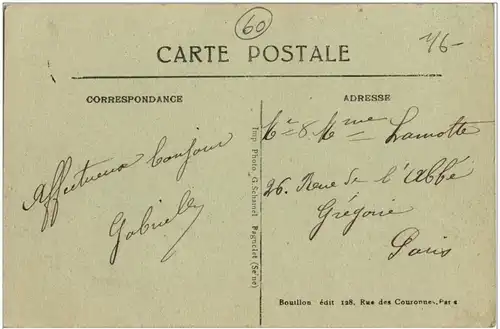 60
1/6-
CARTE POSTALE
CORRESPONDANCE
ADRESSE
Affectueux bonjour
Gabrielle
Mr & Mme Lamotte
26. Rue de l'Abbé
Grégoire
Paris
Imp. Photo. G. Schamel Bagnolet (Seine)
Bouillon édit 128, Rue des Couronnes, Paris